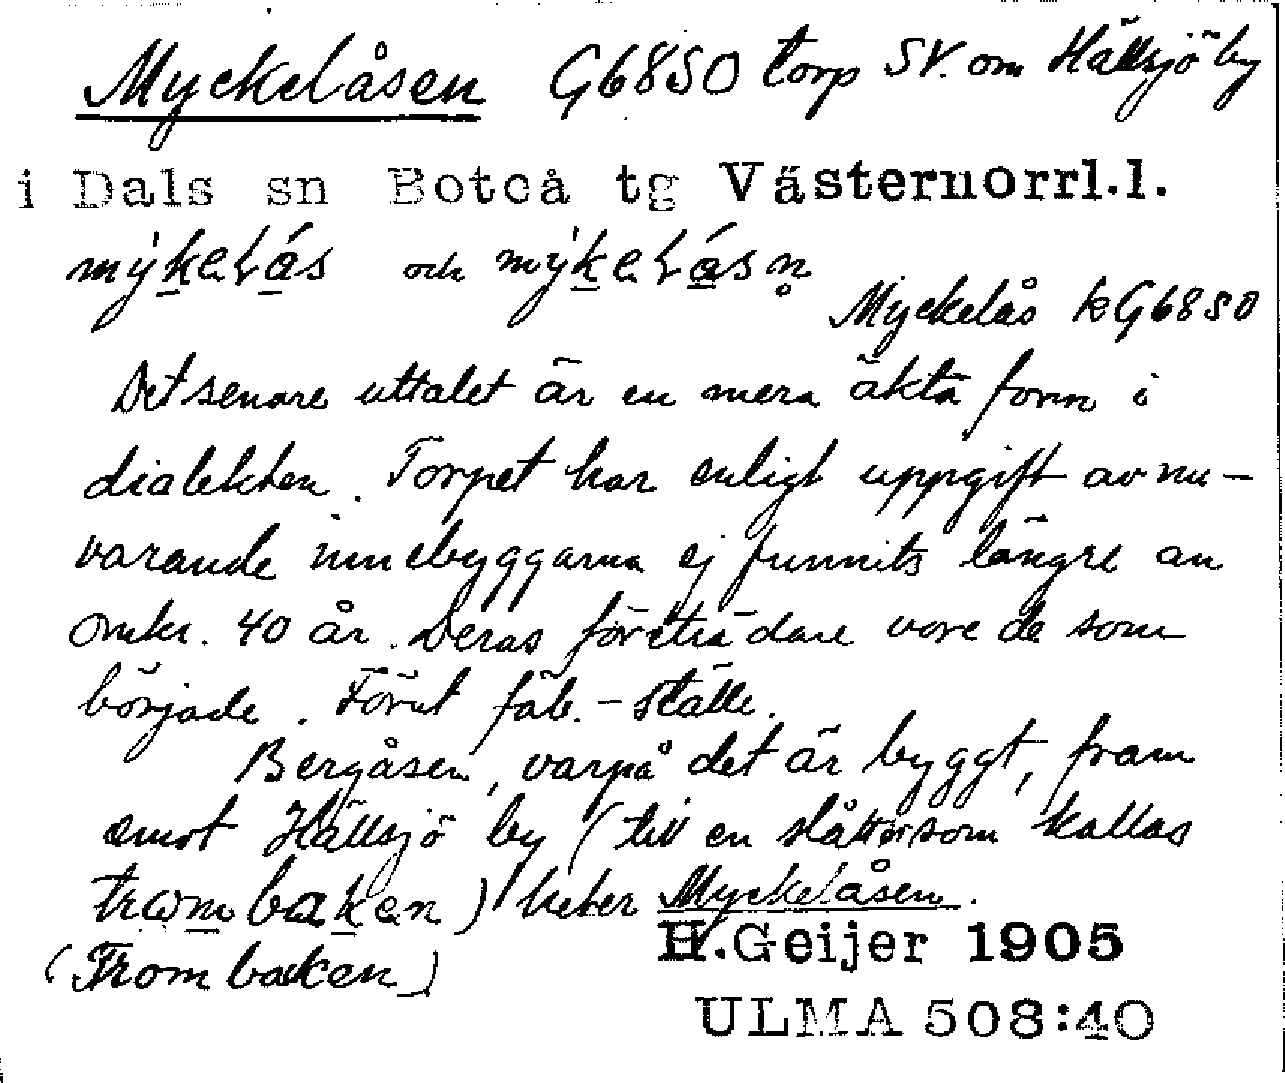 Myckelåsen G6850 torp SV. om Hällsjö by
i Dals sn Boteå tg Västernorrl.l.
mýkelås och mýkelåsn̥
Myckelås kG6850
Det senare uttalet är en mera äkta form i
dialekten. Torpet har enligt uppgift av nu-
varande innebyggarna ej funnits längre än
omkr. 40 år. Deras företrädare vore de som
började. Förut fäb.-ställe.
Bergåsen, varpå det är byggt, fram
emot Hällsjö by (till en slåtter som kallas
trombaken) heter Myckelåsen.
(Trombacken)
H.Geijer 1905
ULMA 508:40